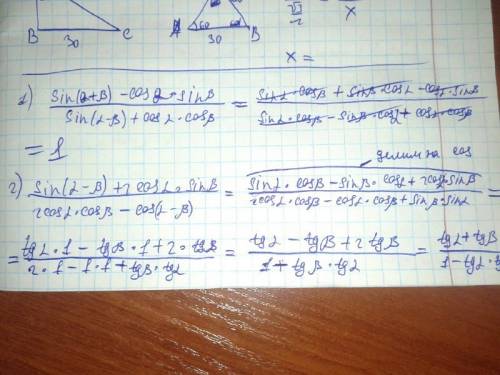 B 30 C
60 60
A 30 B
√3/2
x
x =
1) (sin(α+β) - cosα·sinβ)/(sin(α-β) + cosα·cosβ) = (sinα·cosβ + sinβ·cosα - cosα·sinβ)/(sinα·cosβ - sinβ·cosα + cosα·cosβ)
= 1
делим на cos
2) (sin(α-β) + 2cosα·sinβ)/(2cosα·cosβ - cos(α-β)) = (sinα·cosβ - sinβ·cosα + 2cosα·sinβ)/(2cosα·cosβ - cosα·cosβ + sinβ·sinα) =
= (tgα·1 - tgβ·1 + 2·tgβ)/(2·1 - 1·1 + tgβ·tgα) = (tgα - tgβ + 2tgβ)/(1 + tgβ·tgα) = (tgα + tgβ)/(1 - tgα·t